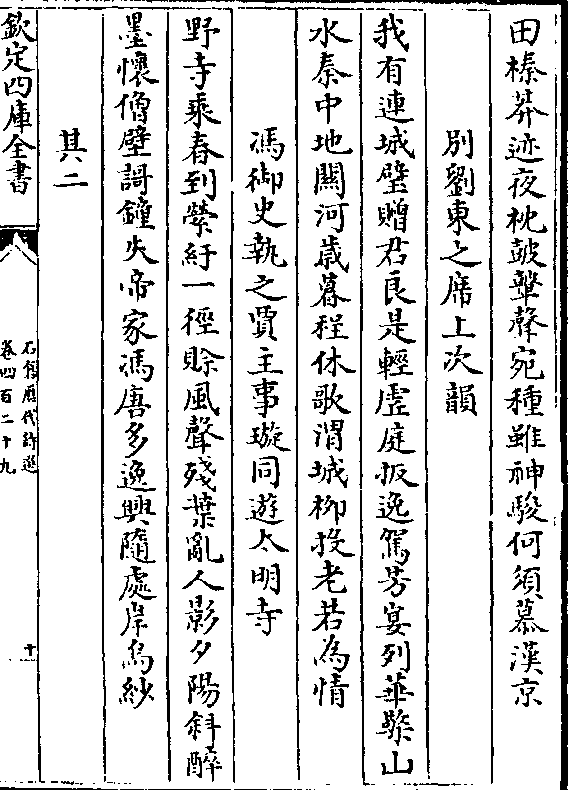 田榛莽迹夜枕鼓鼙聲宛種雖神駿何須慕漢京
別劉東之席上次韻
我有連城璧贈君良是輕虛庭扳逸駕芳宴列華檠山
水秦中地關河歳暮程休歌渭城柳投老若為情
馮御史執之賈主事璇同遊太明寺
野寺乘春到縈紆一徑賖風聲殘葉亂人影夕陽斜醉
墨懷僧壁詩鐘失帝家馮唐多逸興隨處岸烏紗
其二
欽定四庫全書
石倉歷代詩選
卷四百二十九
十